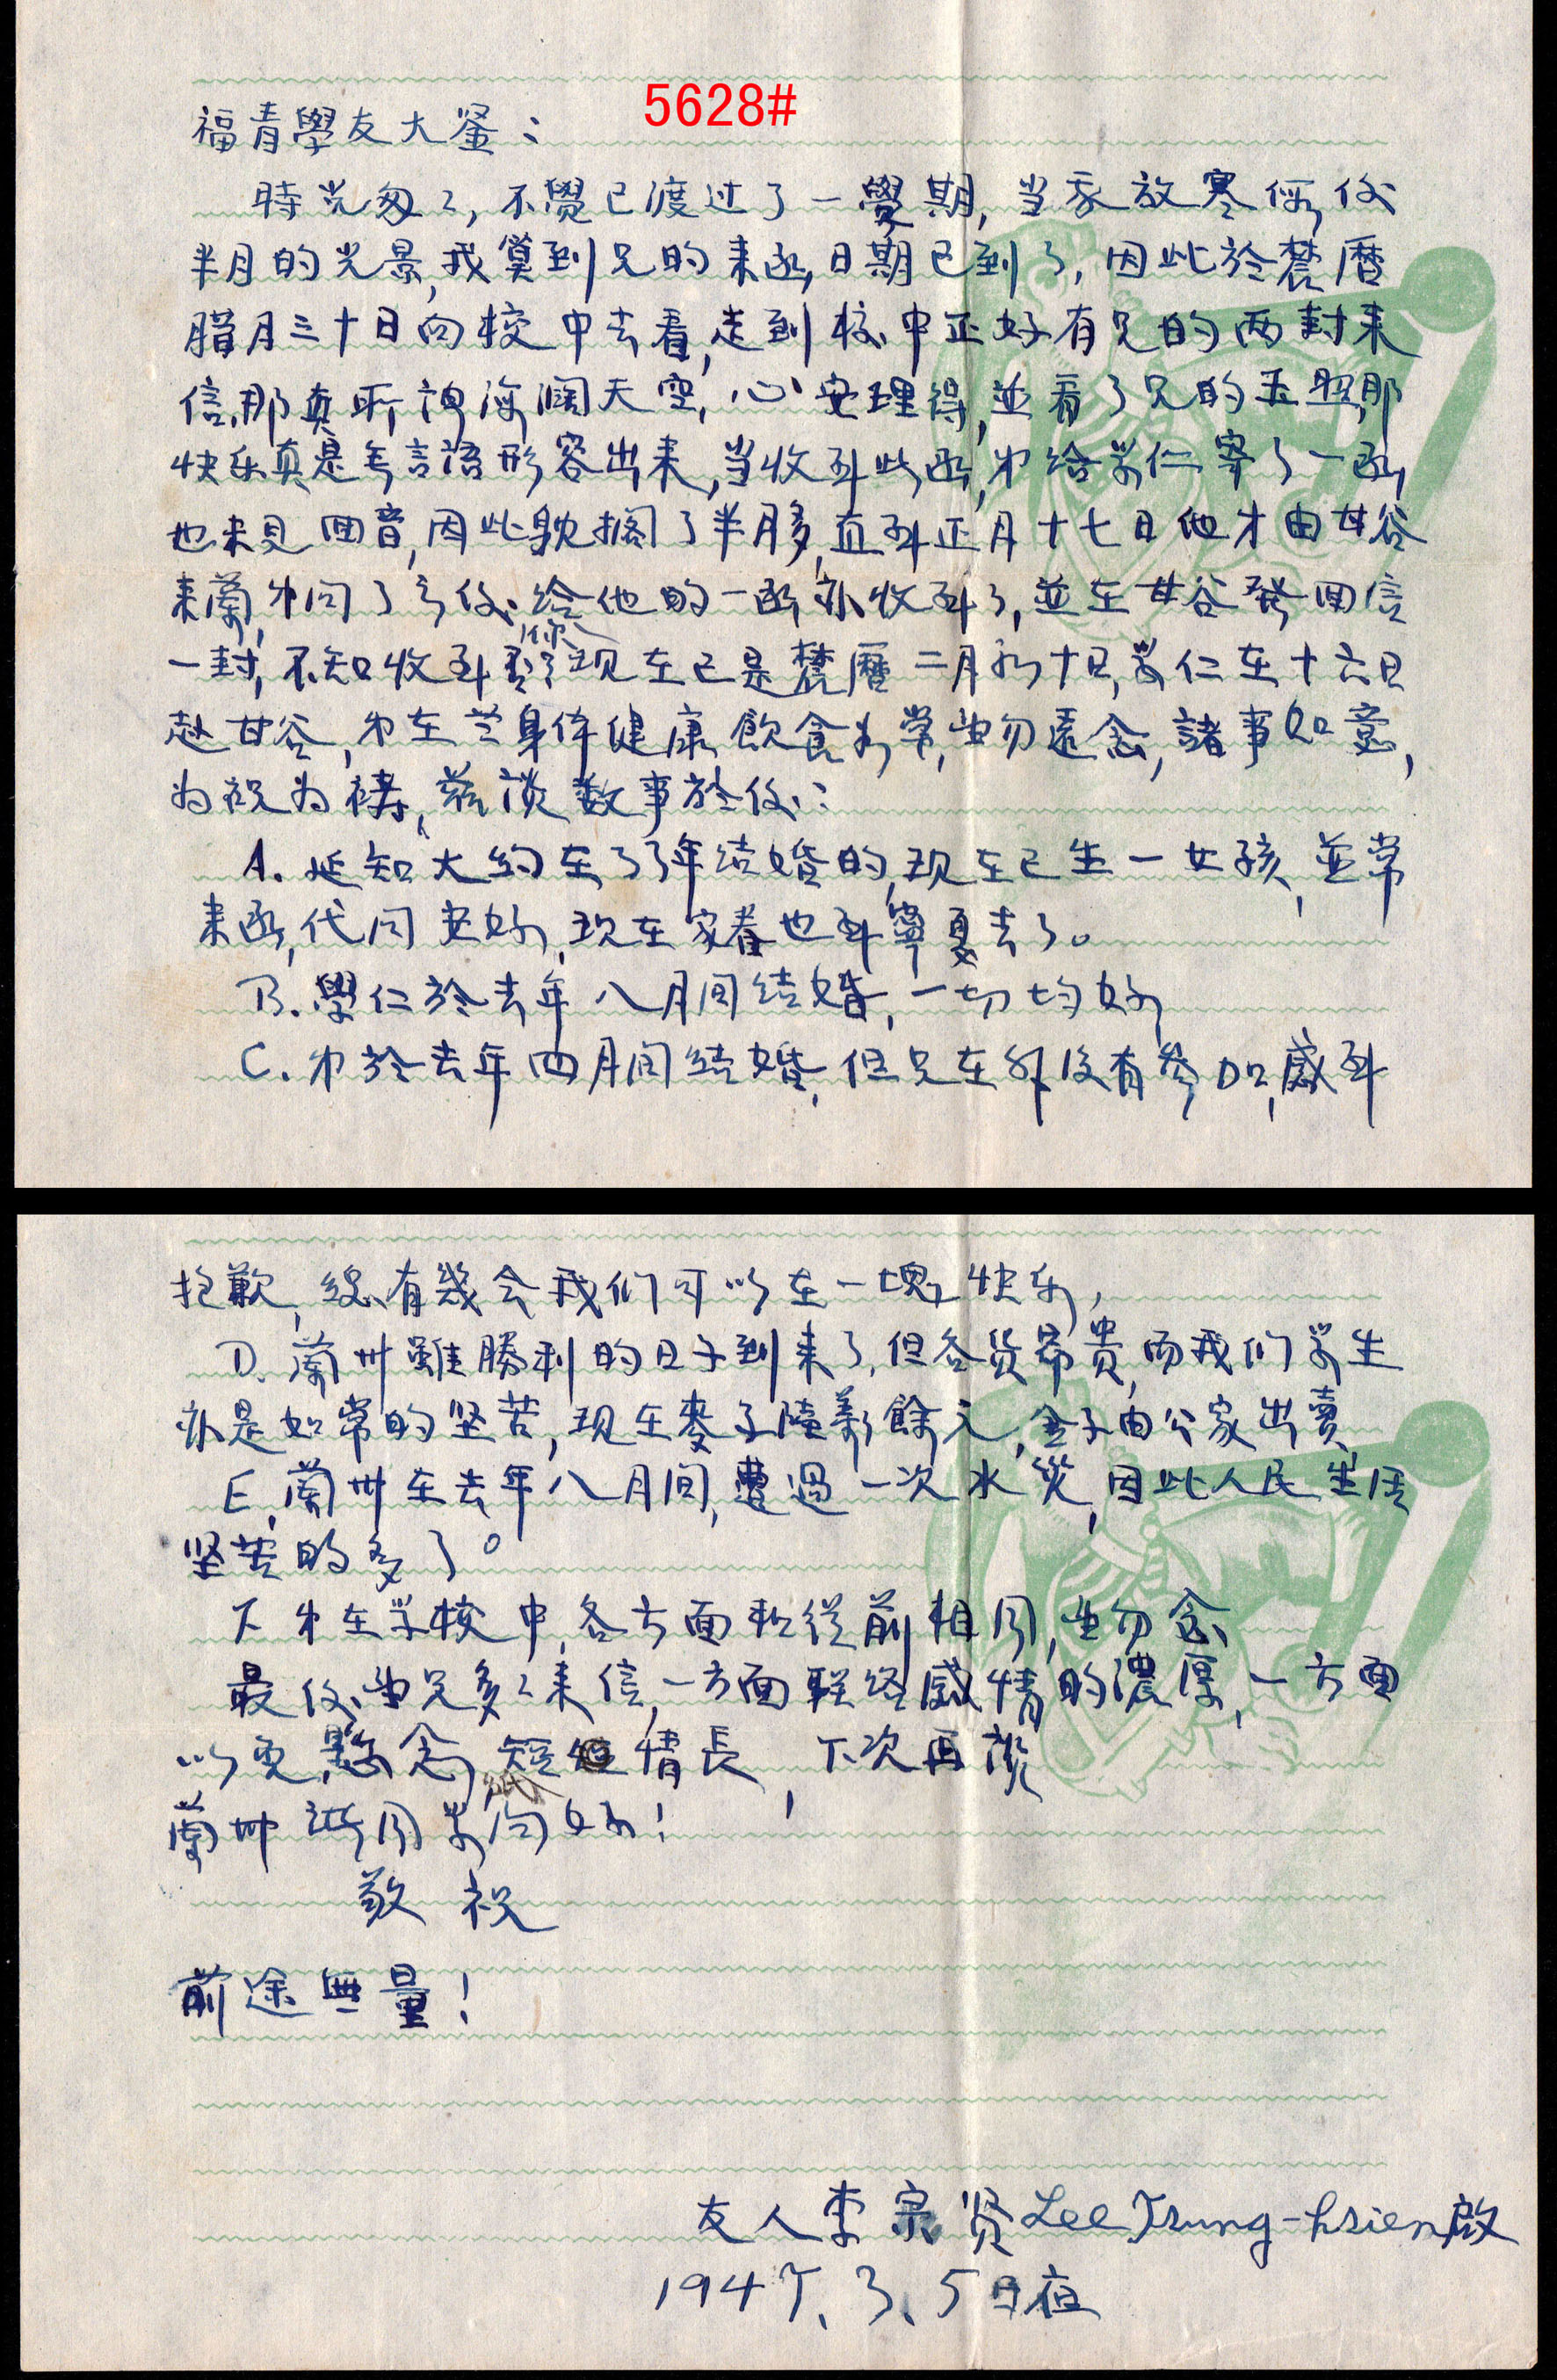 5628#
福青學友大鉴：
時光匆々，不覺已渡过了一學期，当我放寒假后
半月的光景，我算到兄的来函，日期已到了，因此於農曆
腊月三十日向校中去看，走到校中正好有兄的两封来
信，那真所謂海闊天空，心安理得，並看了兄的玉照，那
快乐真是无言語形容出来，当收到此函，弟给学仁寄了一函
也未見回音，因此躭搁了半月多，直到正月十七日他才由甘谷
来蘭，弟问了之后，给他的一函亦收到了，並在甘谷發回信
一封，不知你收到否？现在已是農曆二月初十日，学仁在十六日
赴甘谷，弟在兰身体健康，飲食为常，望勿遠念，諸事如意，
为祝为祷，兹谈数事於后：
A. 延知大约在33年结婚的，现在已生一女孩，並常
来函，代问兄好，现在家眷也到寧夏去了。
B. 學仁於去年八月间结婚，一切均好
C. 弟於去年四月间结婚，但兄在外没有参加，感到
抱歉，總有幾会我们可以在一塊快乐，
D. 蘭州雖勝利的日子到来了，但各货昂贵，而我们学生
亦是如常的坚苦，现在麥子陸萬餘元，金子由公家出賣，
E. 蘭州在去年八月间，遭過一次水災，因此人民生活
坚苦的多了。
F 弟在学校中，各方面和從前相同，望勿念
最后望兄多々来信，一方面联络感情的濃厚，一方面
以免懸念，紙短情長，下次再谈
蘭州諸同学问好！
敬祝
前途無量！
友人李宗贤 Lee Tsung-hsien 啟
1947、3、5日夜